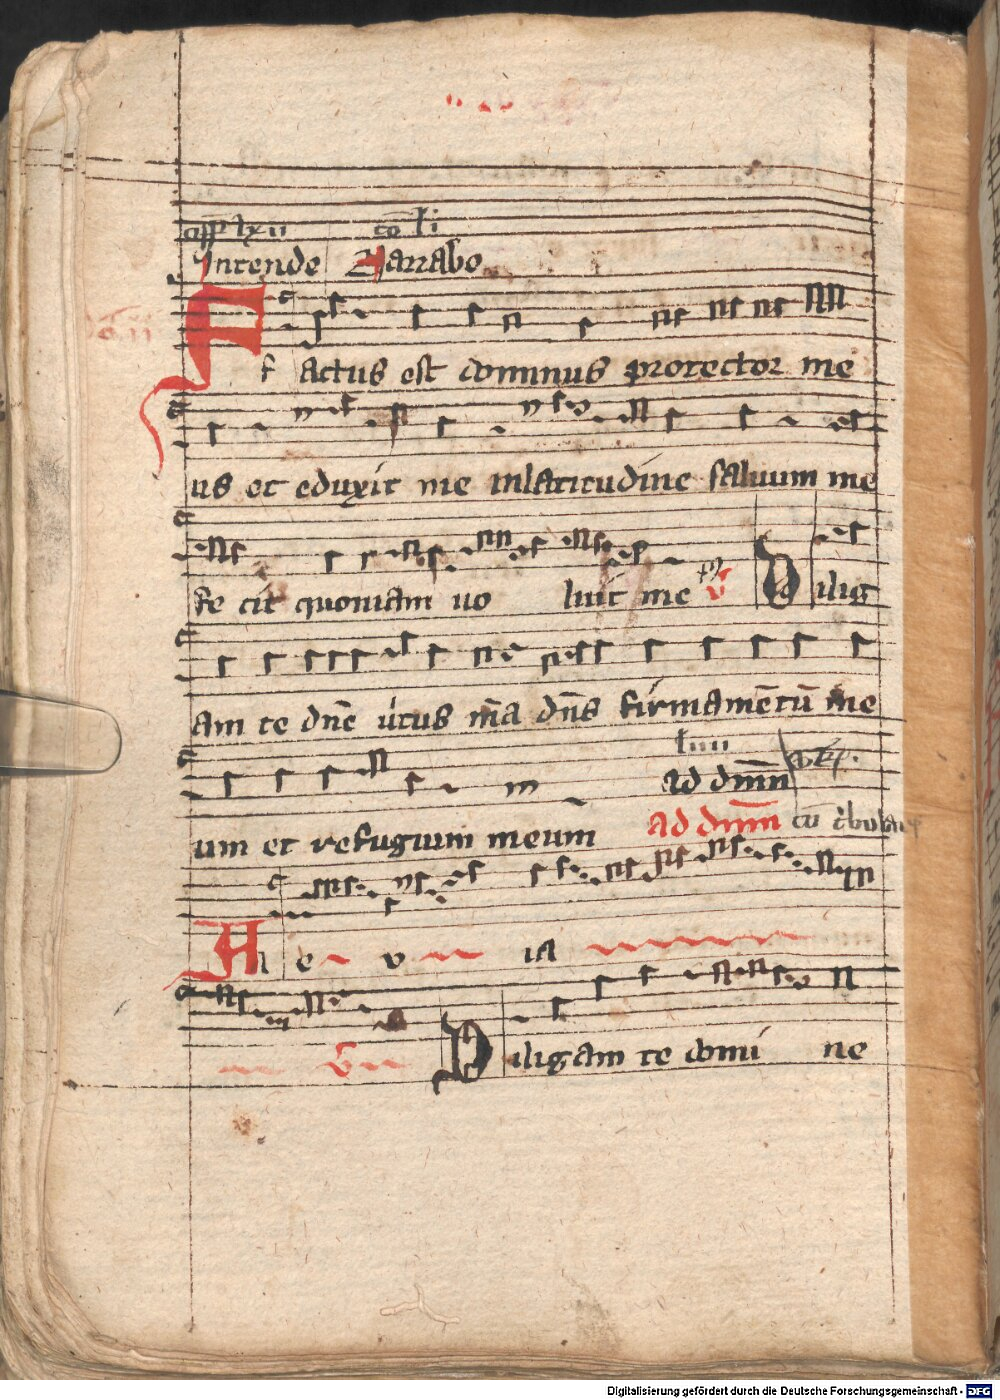 off lxii co li
Intende Narrabo
F f actus est dominus protector me
us et eduxit me inlatitudine saluum me
fe cit quoniam uo luit me v D ilig
am te dne uirtus mea dns firmamētū me
um et refugium meum
liiii
ad dmm
ad dmm cū tbular
All e v ia
D iligam te domi ne
Digitalisierung gefördert durch die Deutsche Forschungsgemeinschaft - DFG